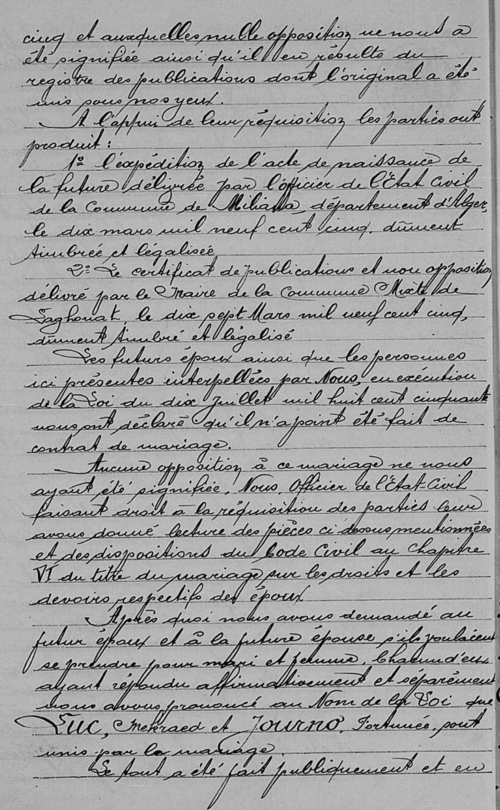 cinq et auxquelles nulle opposition ne nout a
été signifiée ainsi qu'il en résulte du
registre des publications dont l'original a été
mis sous nos yeux.
A l'appui de leur réquisition les parties ont
produit :
1º l'expédition de l'acte de naissance de
la future délivrée par l'officier de l'Etat Civil
de la Commune de Miliana, département d'Alger,
le dix mars mil neuf cent cinq, dûment
timbrée et légalisée
2º Le certificat de publications et non opposition
délivré par le Maire de la Commune Mixte de
Laghouat, le dix sept Mars mil neuf cent cinq,
dûment timbré et légalisé
Les futurs époux ainsi que les personnes
ici présentes interpellées par Nous, en exécution
de la Loi du dix Juillet mil huit cent cinquante
nous ont déclaré qu'il n'a point été fait de
contrat de mariage.
Aucune opposition à ce mariage ne nous
ayant été signifiée, Nous, Officier de l'Etat-Civil
faisant droit à la réquisition des parties leur
avons donné lecture des pièces ci dessus mentionnées
et des dispositions du Code Civil au chapitre
VI du titre du mariage sur les droits et les
devoirs respectifs des époux
Après quoi nous avons demandé au
futur époux et à la future épouse s'ils voulaient
se prendre pour mari et femme, chacun d'eux
ayant répondu affirmativement et séparément
nous avons prononcé au Nom de la Loi que
LUC, et JOURNO, Fortunée, sont
unis par le mariage.
Le tout a été fait publiquement et en